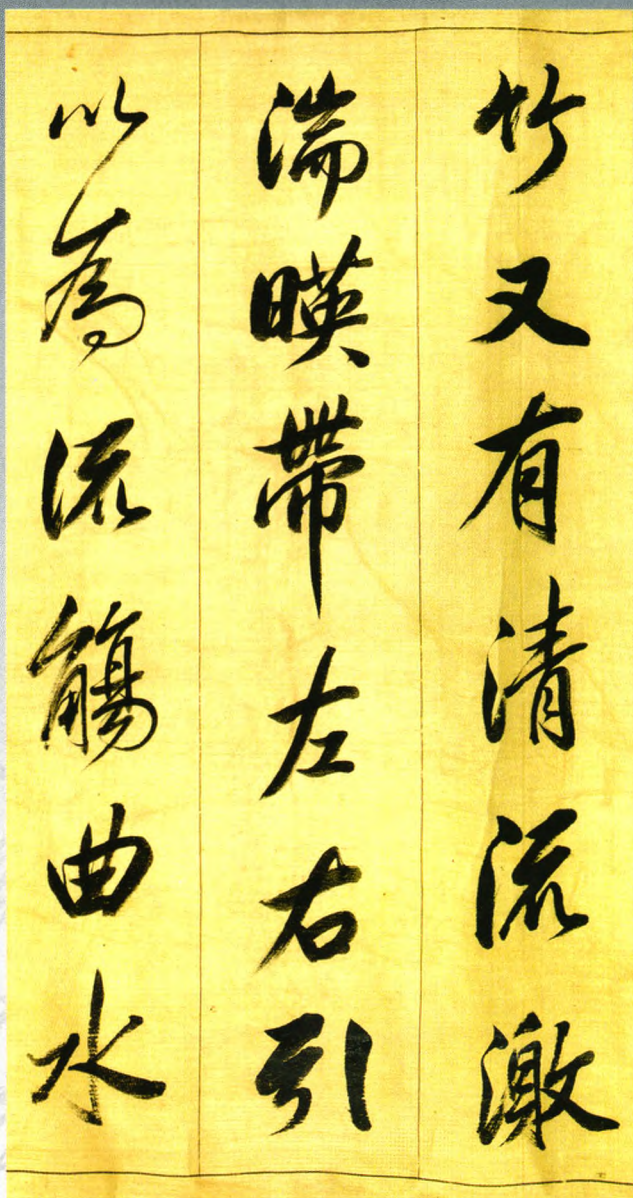 竹又有清流激
湍暎帶左右引
以為流觴曲水